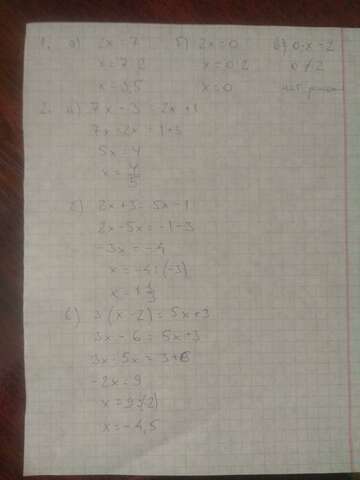 1. а) 2x = 7 б) 2x = 0 в) 0·x = 2
x = 7:2 x = 0:2 0 ≠ 2
x = 3,5 x = 0 нет реш
2. а) 7x - 3 = 2x + 1
7x - 2x = 1 + 3
5x = 4
x = 4/5
б) 2x + 3 = 5x - 1
2x - 5x = -1 - 3
-3x = -4
x = -4 : (-3)
x = 1 1/3
в) 3(x - 2) = 5x + 3
3x - 6 = 5x + 3
3x - 5x = 3 + 6
-2x = 9
x = 9:(-2)
x = -4,5